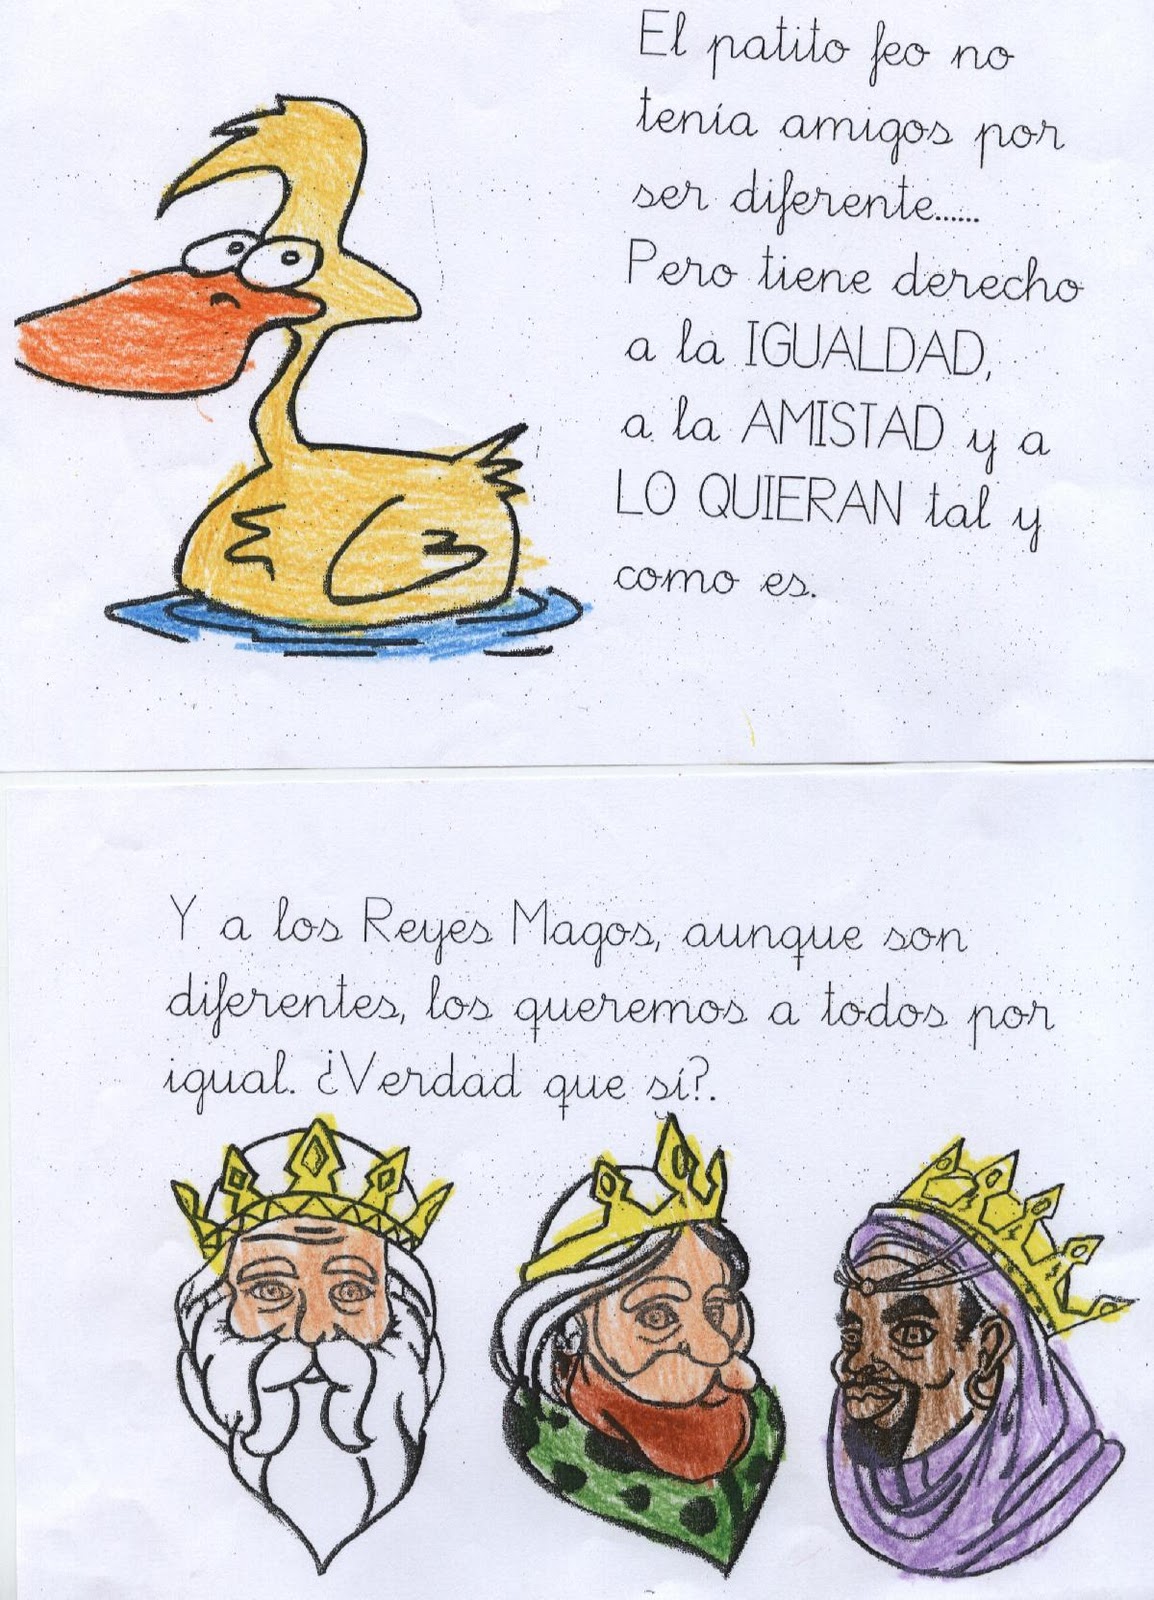 El patito feo no
tenía amigos por
ser diferente......
Pero tiene derecho
a la IGUALDAD,
a la AMISTAD y a
LO QUIERAN tal y
como es.
Y a los Reyes Magos, aunque son
diferentes, los queremos a todos por
igual. ¿Verdad que sí?.